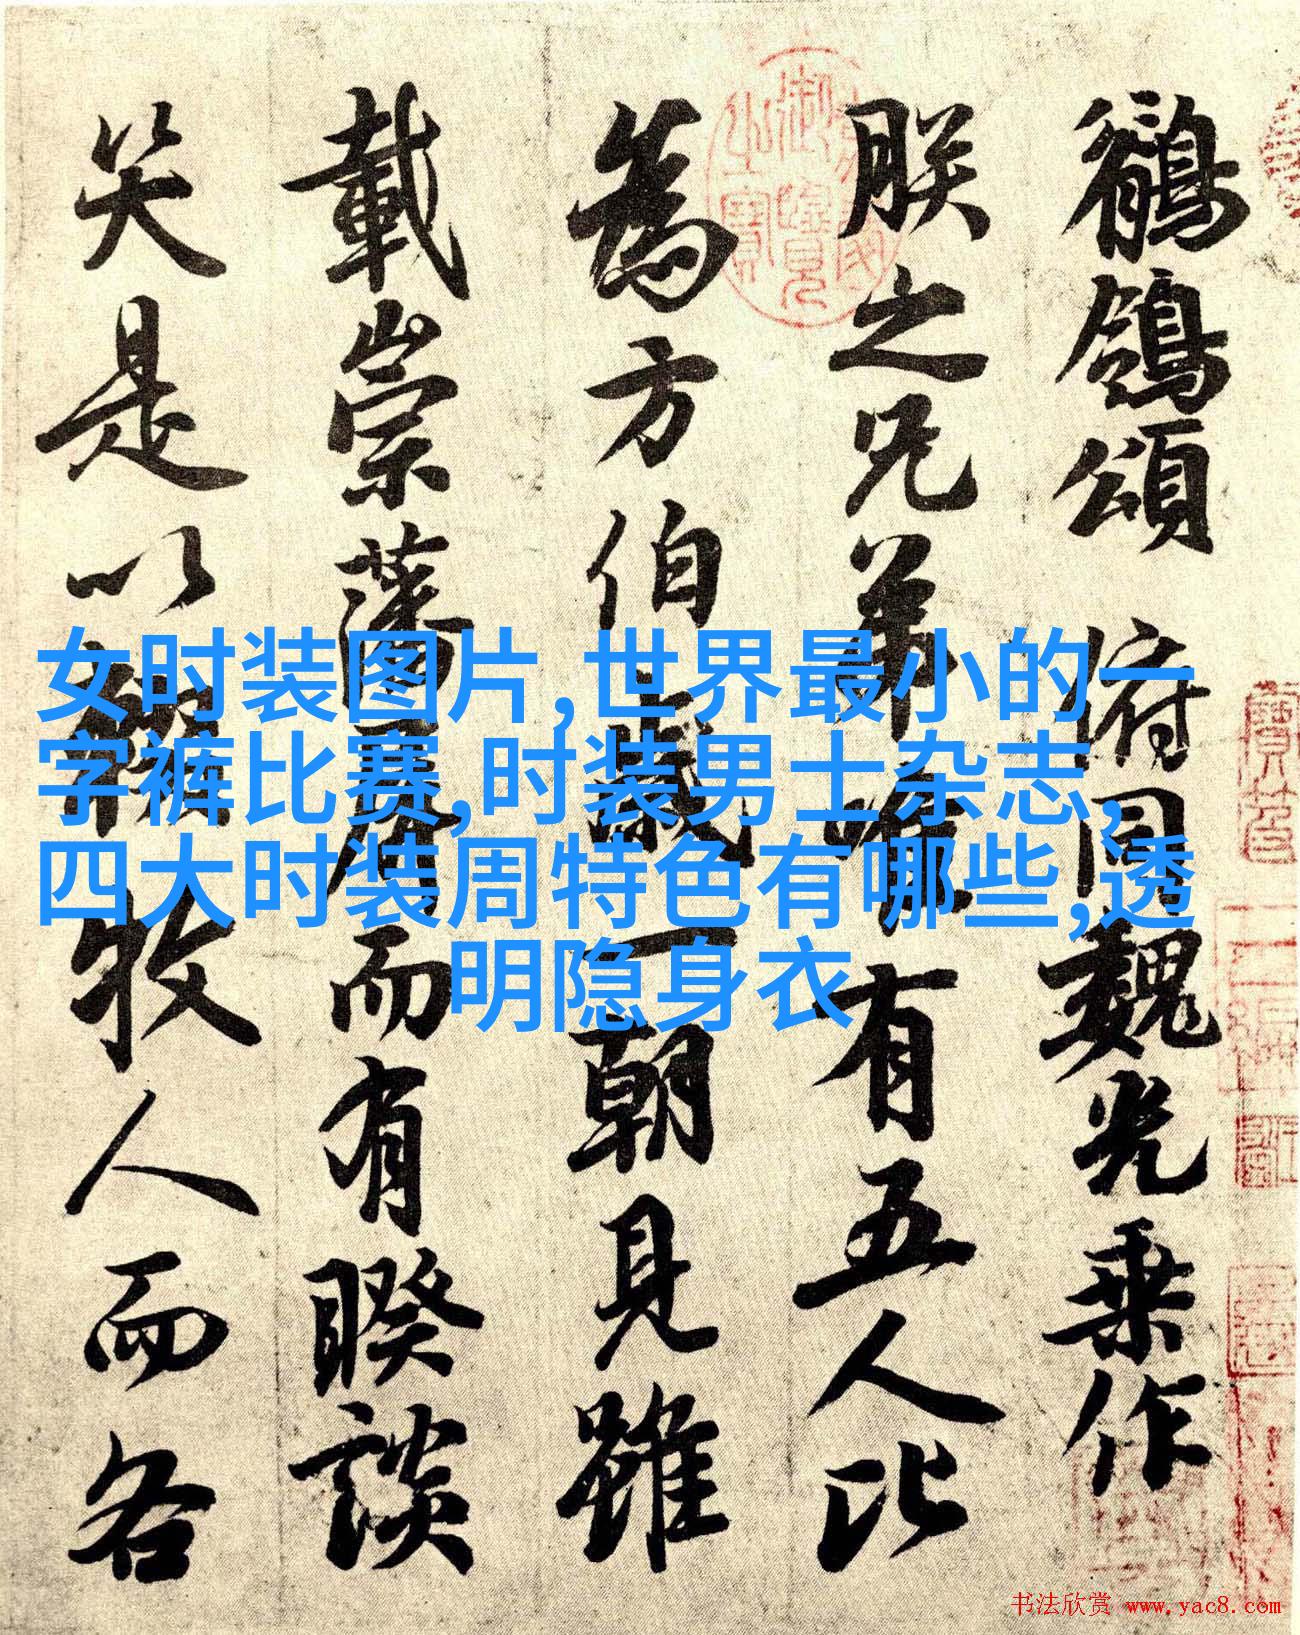 鶺鴒頌 俯同魏光乘作
朕之兄弟唯有五人比
為方伯歲一朝見雖
載崇藩屏而有睽談
笑是以輟牧人而各
女时装图片,世界最小的一
字裤比赛,时装男士杂志,
四大时装周特色有哪些,透
明隐身衣
书法欣赏 www.yac8.com